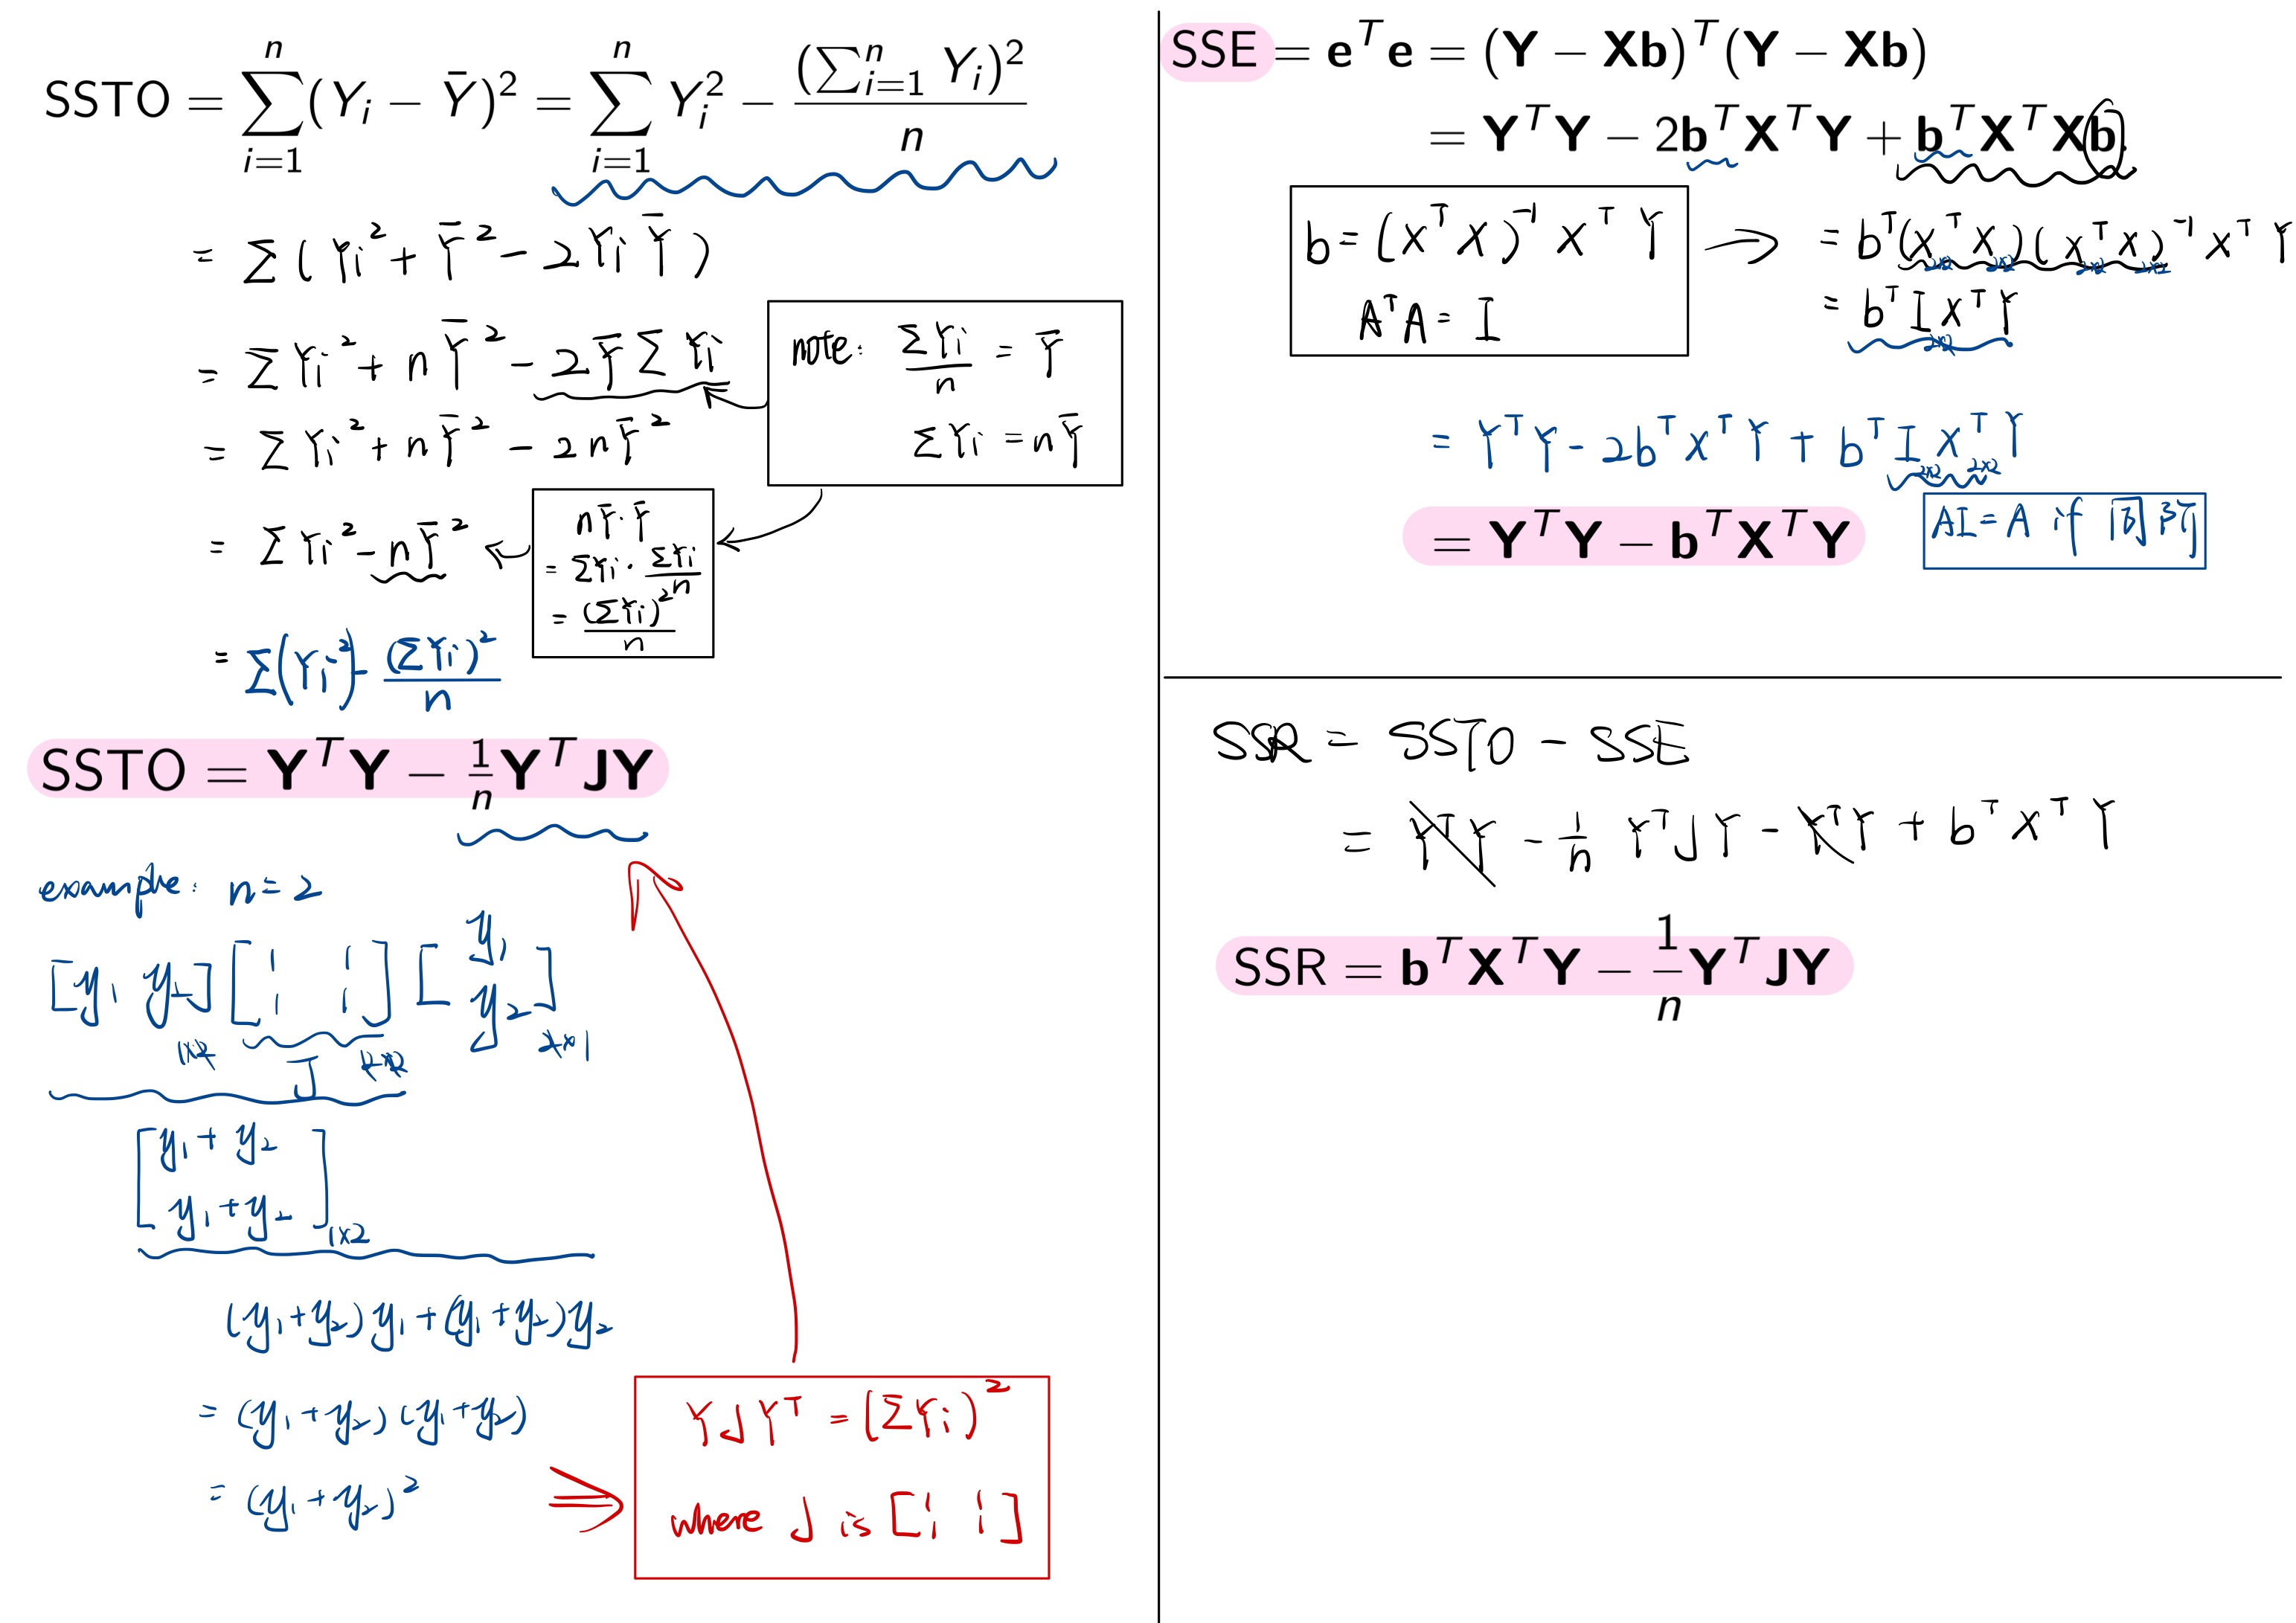 SSTO = ∑_{i=1}^{n} (Y_i − Ȳ)² = ∑_{i=1}^{n} Y_i² − (∑_{i=1}^{n} Y_i)² / n
= ∑ ( Yi² + Ȳ² − 2 Yi Ȳ )
= ∑ Yi² + n Ȳ² − 2 Ȳ ∑ Yi
= ∑ Yi² + n Ȳ² − 2 n Ȳ²
= ∑ Yi² − n Ȳ²
= ∑(Yi²) − (∑ Yi)² / n
note: ∑ Yi / n = Ȳ
∑ Yi = n Ȳ
n Ȳ · Ȳ
= ∑ Yi · ∑ Yi / n
= (∑ Yi)² / n
SSTO = Y^T Y − 1/n Y^T J Y
example: n = 2
[y₁ y₂] [1 1; 1 1] [y₁; y₂]
1×2 J 2×2 2×1
[y₁ + y₂
y₁ + y₂] 1×2
(y₁ + y₂) y₁ + (y₁ + y₂) y₂
= (y₁ + y₂) (y₁ + y₂)
= (y₁ + y₂)²
⇒
Y J Y^T = (∑ Yi)²
where J is [1 1; 1 1]
SSE = e^T e = (Y − Xb)^T (Y − Xb)
= Y^T Y − 2b^T X^T Y + b^T X^T Xb.
b = (X^T X)^{-1} X^T Y
A^T A = I
→ = b^T (X^T X) (X^T X)^{-1} X^T Y
2×2 2×2 2×2 2×2
= b^T I X^T Y
2×2
= Y^T Y − 2b^T X^T Y + b^T I X^T Y
2×2 2×2
= Y^T Y − b^T X^T Y
AI = A if 同階
SSR = SSTO − SSE
= Y^T Y − 1/n Y^T J Y − Y^T Y + b^T X^T Y
SSR = b^T X^T Y − 1/n Y^T J Y